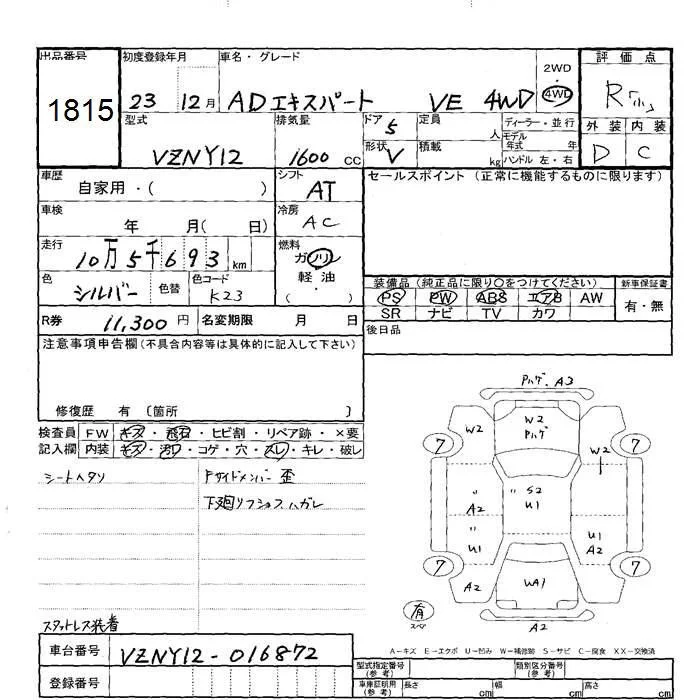 出品番号 初度登録年月 車名・グレード 2WD 評価点
1815 23 12月 ADエキスパート VE 4WD 4WD R
型式 排気量 ドア 5 定員 人 ディーラー・並行 外装 内装
VZNY12 1600 cc 形状 V 積載 kg モデル年式 年 D C
ハンドル 左・右
車歴 自家用・( ) シフト AT セールスポイント (正常に機能するものに限ります)
車検 年 月( 日) 冷房 AC
走行 10万5千693km 燃料 ガソリン
軽油
・( )
色 シルバー 色替 色コード K23
装備品 (純正品に限り○をつけてください) 新車保証書
PS PW ABS エアB AW 有・無
SR ナビ TV カワ
R券 11,300円 名変期限 月 日 後日品
注意事項申告欄(不具合内容等は具体的に記入して下さい)
修復歴 有 〔箇所 〕
検査員 FW キズ・飛石・ヒビ割・リペア跡・×要
記入欄 内装 キズ・汚れ・コゲ・穴・スレ・キレ・破レ
シートヘタリ Fサイドメンバー歪
下廻リ ハガレ
スタットレス装着
Pハゲ.A3
W2 W2 Pハゲ W2
7 7
〃 A2 〃 S2 U1
〃 U1 U1 A2
7 7
A2 WA1
有 スペア
A2
A-キズ E-エクボ U-凹み W-補修跡 S-サビ C-腐食 XX-交換済
車台番号 VZNY12-016872
登録番号
型式指定番号(参考) 類別区分番号(参考)
車庫証明用(参考) 長さ cm 幅 cm 高さ cm